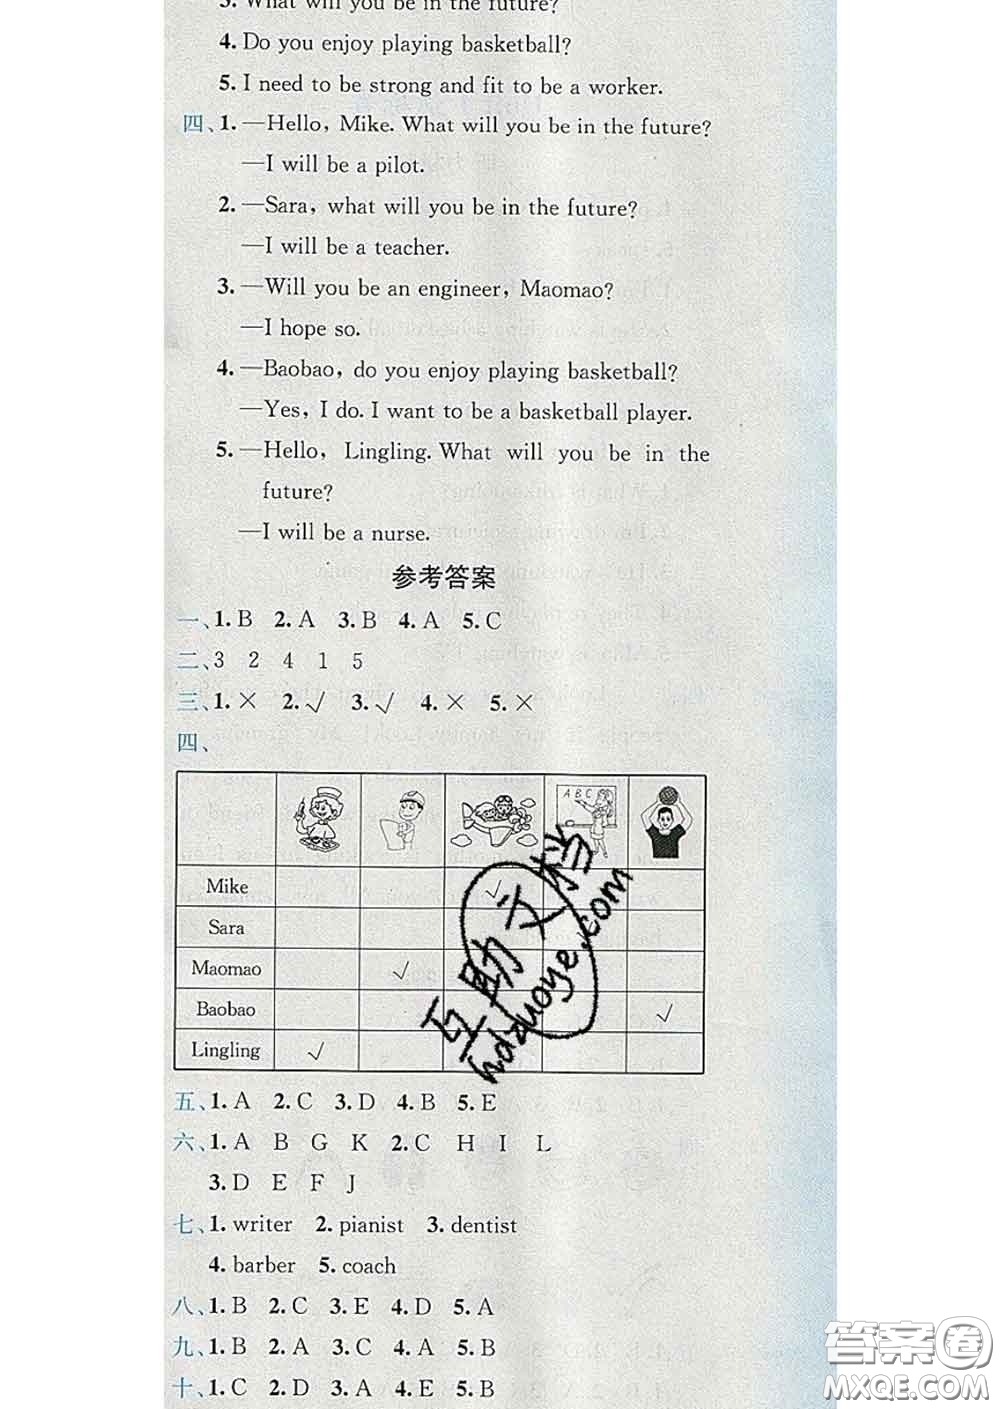 3. What will you be in the future?
4. Do you enjoy playing basketball?
5. I need to be strong and fit to be a worker.
四、1. —Hello, Mike. What will you be in the future?
—I will be a pilot.
2. —Sara, what will you be in the future?
—I will be a teacher.
3. —Will you be an engineer, Maomao?
—I hope so.
4. —Baobao, do you enjoy playing basketball?
—Yes, I do. I want to be a basketball player.
5. —Hello, Lingling. What will you be in the
future?
—I will be a nurse.
参考答案
一、1. B 2. A 3. B 4. A 5. C
二、3 2 4 1 5
三、1. × 2. √ 3. √ 4. × 5. ×
四、
A B C
Mike √
Sara
Maomao √
Baobao √
Lingling √
互助文档
hdzuoye.com
五、1. A 2. C 3. D 4. B 5. E
六、1. A B G K 2. C H I L
3. D E F J
七、1. writer 2. pianist 3. dentist
4. barber 5. coach
八、1. B 2. C 3. E 4. D 5. A
九、1. B 2. A 3. C 4. A 5. B
十、1. C 2. D 3. A 4. E 5. B
答案圈
MXQE.COM